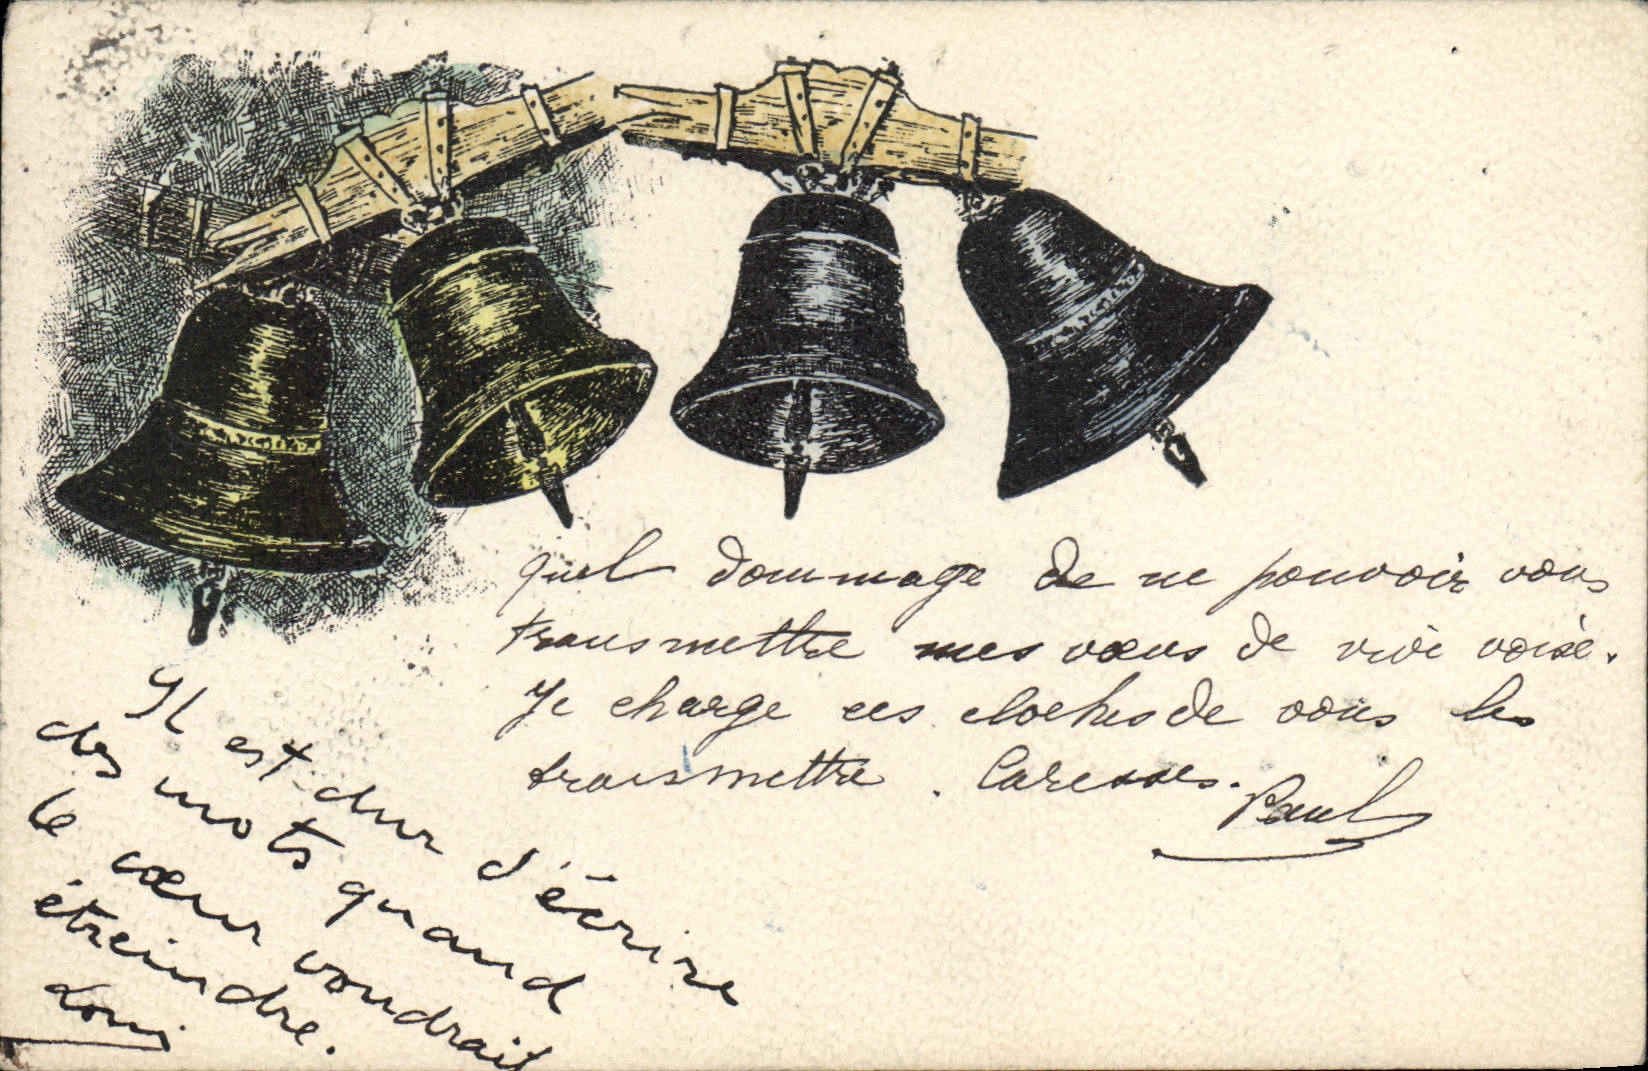 Quel dommage de ne pouvoir vous
transmettre mes vœux de vive voix.
Je charge ces cloches de vous les
transmettre. Caresses.
Paul
Il est dur d'écrire
des mots quand
le cœur voudrait
étreindre.
Loui